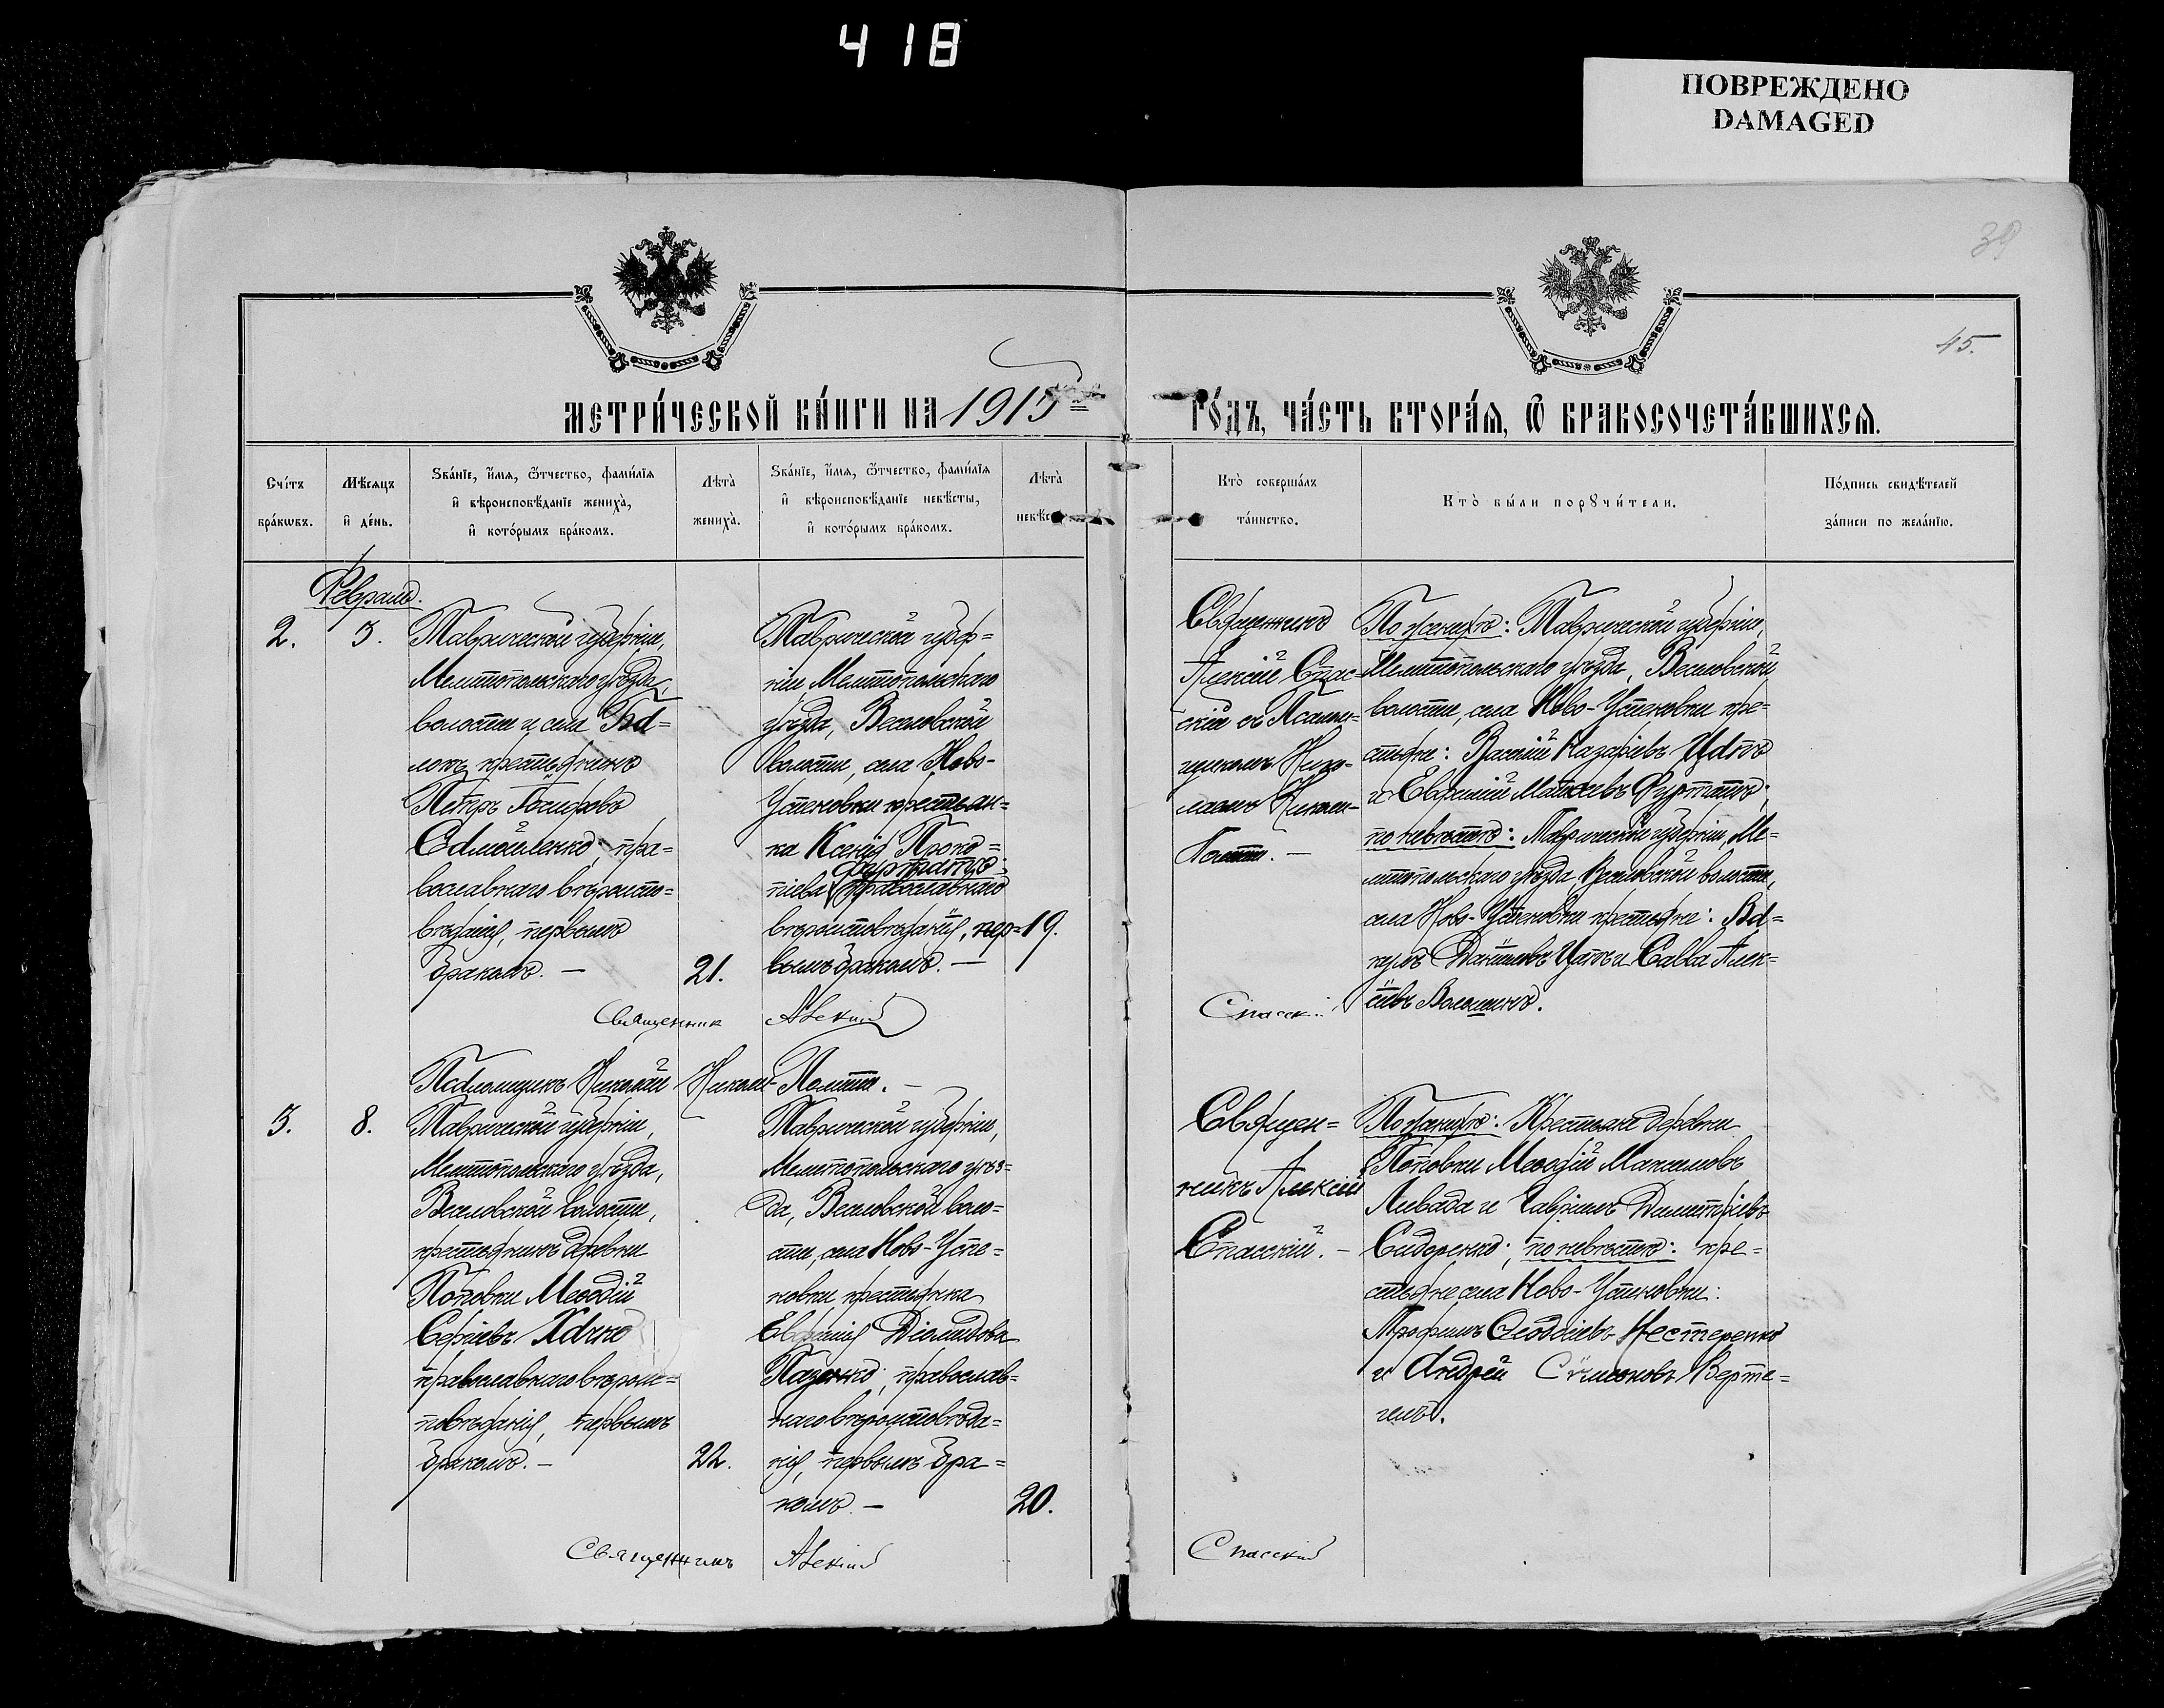 418
ПОВРЕЖДЕНО
DAMAGED
39
45.
МЕТРИ́ЧЕСКОЙ КНИ́ГИ НА 1915 й
ГО́ДЪ, ЧА́СТЬ ВТОРА́Я, Ѿ БРАКОСОЧЕТА́ВШИХСѦ.
Сче́тъ
бра́кѡвъ.
Мѣ́сѧцъ
и҆ де́нь.
Ѕва́нїе, и҆́мѧ, ѻ҆́тчество, фами́лїѧ
и҆ вѣроисповѣ́данїе жениха̀,
и҆ кото́рымъ бра́комъ.
Лѣ́та
жениха̀.
Ѕва́нїе, и҆́мѧ, ѻ҆́тчество, фами́лїѧ
и҆ вѣроисповѣ́данїе невѣ́сты,
и҆ кото́рымъ бра́комъ.
Лѣ́та
невѣ́с
Кто̀ соверша́лъ
та́инство.
Кто̀ бы́ли порꙋчи́тели.
По́дпись свидѣ́телей
за́писи по жела́нїю.
Февраль.
2.
5.
Таврической губерніи,
Мелитопольскаго уѣзда,
волости и села Бѣ=
крестьянинъ
Петръ
Самойленко, пра=
вославнаго вѣроиспо=
вѣданія, первымъ
бракомъ. —
21.
Таврической губер=
ніи, Мелитопольскаго
уѣзда, Веселовской
волости, села Ново-
Успеновки крестьян=
ка Ксенія Проко=
піева православнаго
вѣроисповѣданія, пер=
вымъ бракомъ. —
19.
Священникъ
Алексій Спас=
скій съ Псалом=
щикомъ Нико=
лаемъ
По женихѣ: Таврической губерніи,
Мелитопольскаго уѣзда, Веселовской
волости, села Ново-Успеновки кре=
стьяне: Василій Назаріевъ
и Евфимій
по невѣстѣ: Таврической губерніи, Ме=
литопольскаго уѣзда, Веселовской волости,
села Ново-Успеновки крестьяне:
и Савва Алек=
сіевъ
Священник Алексий Спасский
Псаломщикъ Николай
3.
8.
Таврической губерніи,
Мелитопольскаго уѣзда,
Веселовской волости,
крестьянинъ деревни
Поповки Меѳодій
Сергіевъ
православнаго вѣроис=
повѣданія, первымъ
бракомъ. —
22.
Таврической губерніи,
Мелитопольскаго уѣз=
да, Веселовской воло=
сти, села Ново-Успе=
новки крестьянка
Діомидова
православ=
наго вѣроисповѣда=
нія, первымъ бра=
комъ. —
20.
Священ=
никъ Алексій
Спасскій. —
По женихѣ: Крестьяне деревни
Поповки Меѳодій Максимовъ
Ливада и Гавріилъ Димитріевъ
Сидоренко; по невѣстѣ: кре=
стьяне села Ново-Успеновки:
Трофимъ Ѳеодосіевъ Нестеренко
и Андрей Симеоновъ Верте=
Священникъ Алексий Спасский